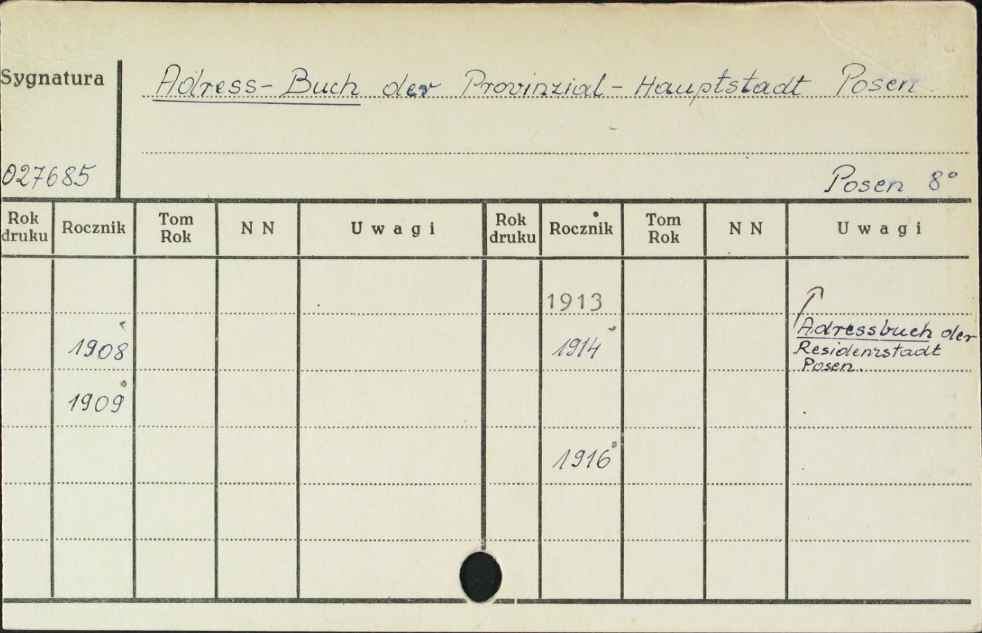 Sygnatura
Adress-Buch der Provinzial-Hauptstadt Posen
027685
Posen 8°
Rok druku Rocznik Tom Rok N N Uwagi Rok druku Rocznik Tom Rok N N Uwagi
1913
1908 1914 Adressbuch der
Residenzstadt
Posen.
1909
1916